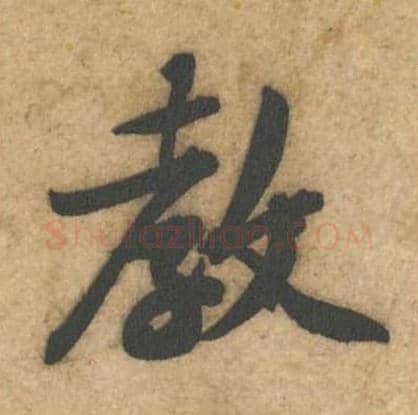 教
shufazidian.com